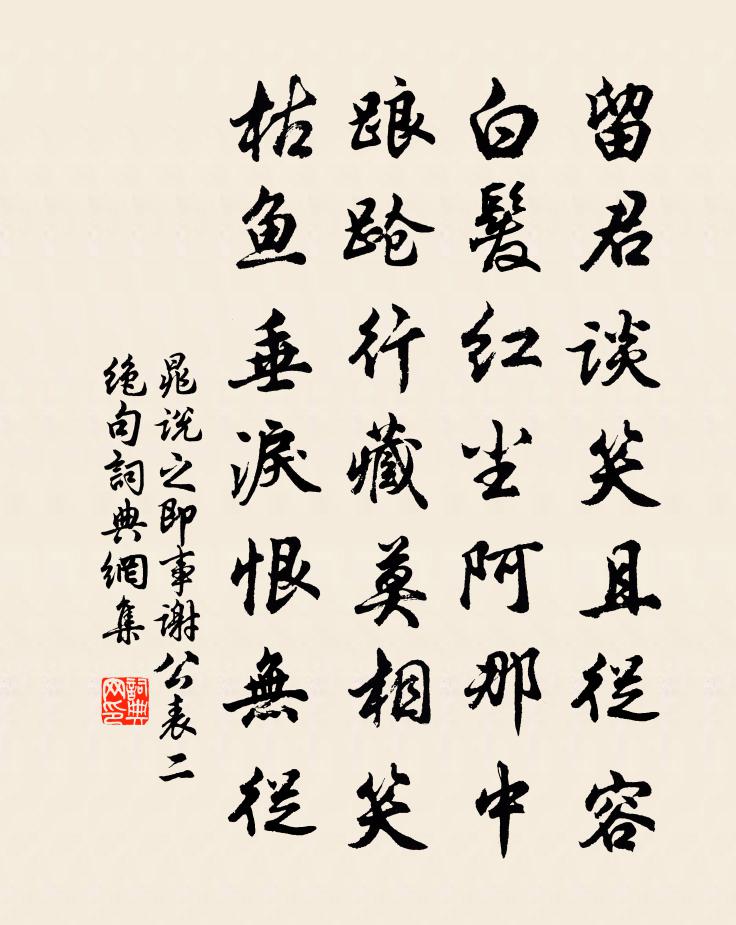 留君谈笑且從容
白髮红尘阿那中
踉跄行藏莫相笑
枯鱼垂淚恨無從
晁说之即事謝公表二
绝句詞典網集
詞典网印